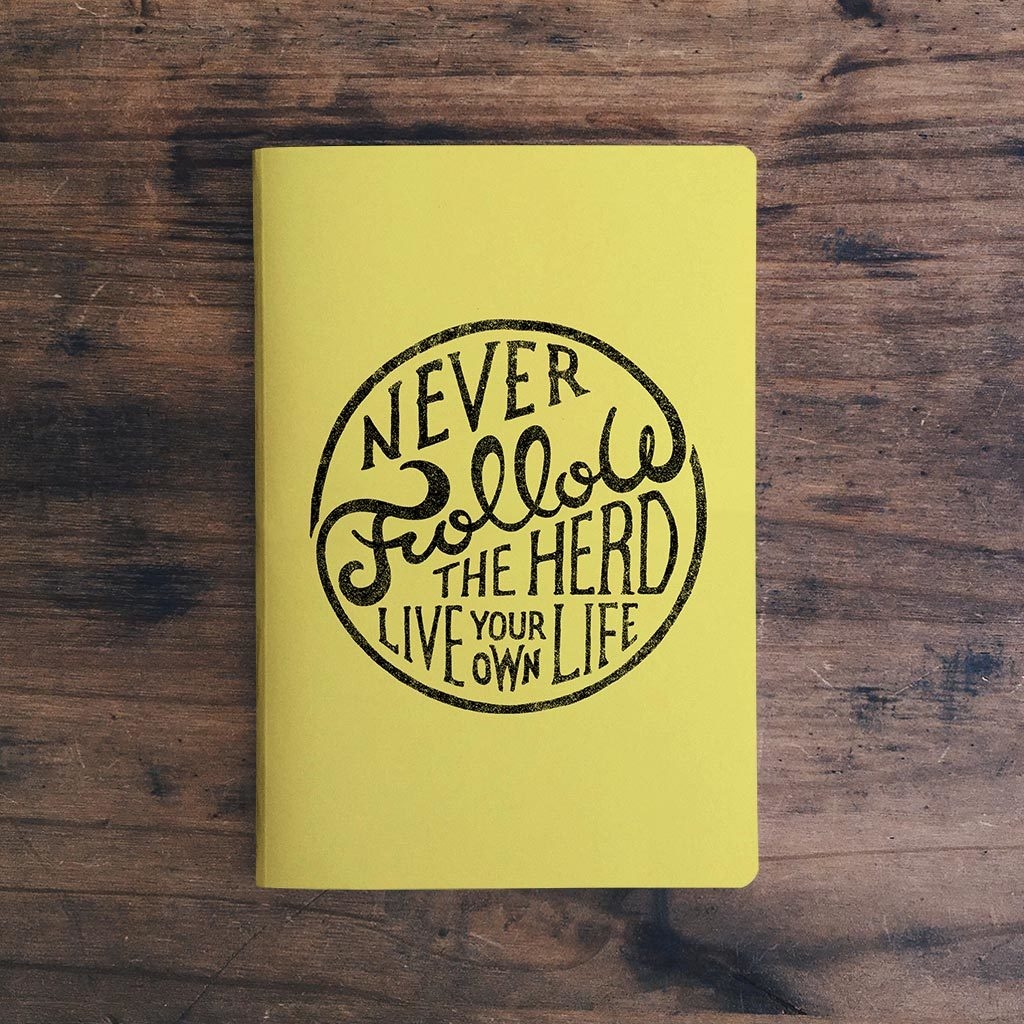 NEVER
Follow
THE HERD
LIVE YOUR OWN LIFE